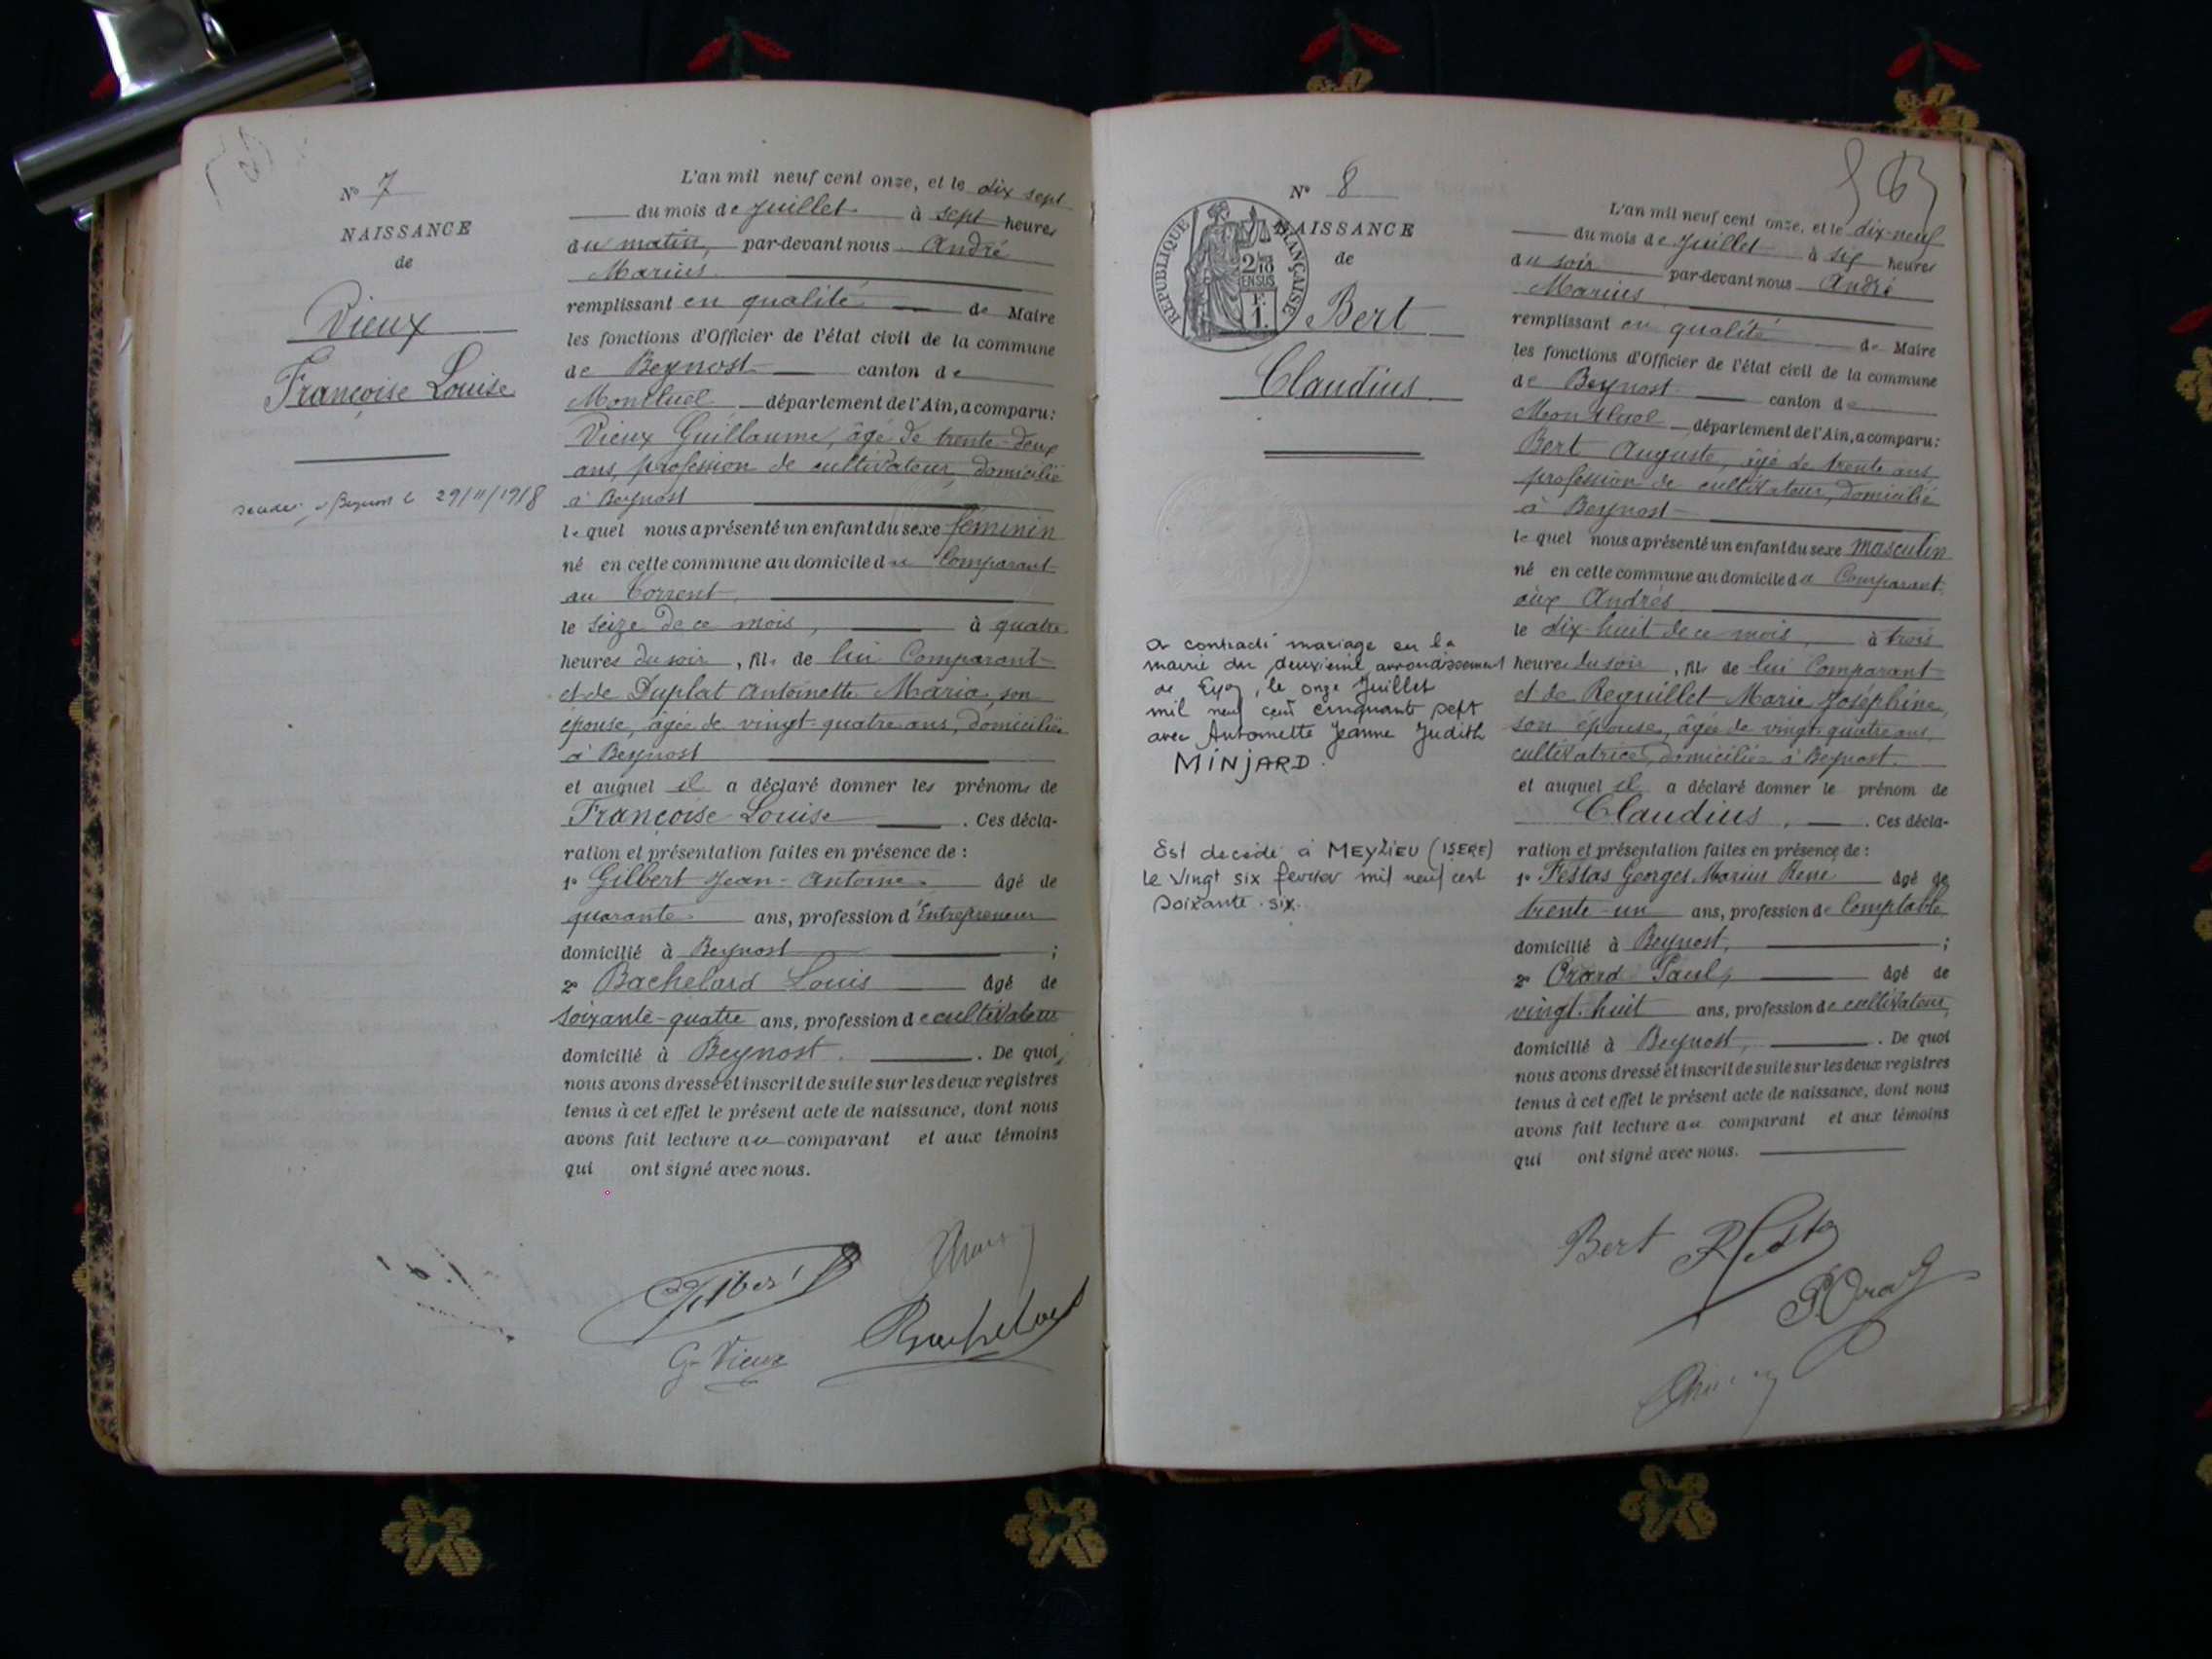 N° 7
NAISSANCE
de
Vieux
Françoise Louise
à Beynost le 29/11/1918
L'an mil neuf cent onze, et le dix sept
du mois de Juillet à sept heures
du matin, par-devant nous André
Marius
remplissant en qualité de Maire
les fonctions d'Officier de l'état civil de la commune
de Beynost canton de
Montluel département de l'Ain, a comparu:
Vieux Guillaume, âgé de trente-deux
ans, profession de cultivateur, domicilié
à Beynost
lequel nous a présenté un enfant du sexe féminin
né en cette commune au domicile du Comparant
au Torrent
le seize de ce mois, à quatre
heures du soir, fils de lui Comparant
et de Duplat Antoinette Maria, son
épouse, âgée de vingt-quatre ans, domiciliée
à Beynost
et auquel il a déclaré donner les prénoms de
Françoise Louise . Ces décla-
ration et présentation faites en présence de :
1° Gilbert Jean-Antoine âgé de
quarante ans, profession d'Entrepreneur
domicilié à Beynost ;
2° Bachelard Louis âgé de
soixante-quatre ans, profession de cultivateur
domicilié à Beynost . De quoi
nous avons dressé et inscrit de suite sur les deux registres
tenus à cet effet le présent acte de naissance, dont nous
avons fait lecture au comparant et aux témoins
qui ont signé avec nous.
Gilbert
G. Vieux
Bachelard
N° 8
NAISSANCE
de
Bert
Claudius
REPUBLIQUE FRANÇAISE
2/10
EN SUS
F.
1.
a contracté mariage en la
mairie du deuxième arrondissement
de Lyon, le onze Juillet
mil neuf cent cinquante sept
avec Antoinette Jeanne Judith
MINJARD.
Est décédé à MEYZIEU (ISERE)
le vingt six fevrier mil neuf cent
soixante-six.
L'an mil neuf cent onze, et le dix-neuf
du mois de Juillet à six heures
du soir par-devant nous André
Marius
remplissant en qualité de Maire
les fonctions d'Officier de l'état civil de la commune
de Beynost canton de
Montluel département de l'Ain, a comparu:
Bert Auguste, âgé de trente ans,
profession de cultivateur, domicilié
à Beynost
lequel nous a présenté un enfant du sexe masculin
né en cette commune au domicile du Comparant
aux Andrés
le dix-huit de ce mois, à trois
heures du soir, fils de lui Comparant
et de Reguillet Marie Joséphine,
son épouse, âgée de vingt-quatre ans,
cultivatrice, domiciliée à Beynost.
et auquel il a déclaré donner le prénom de
Claudius . Ces décla-
ration et présentation faites en présence de :
1° Festas Georges Marius René âgé de
trente-un ans, profession de Comptable
domicilié à Beynost, ;
2° Orard Paul, âgé de
vingt-huit ans, profession de cultivateur,
domicilié à Beynost, . De quoi
nous avons dressé et inscrit de suite sur les deux registres
tenus à cet effet le présent acte de naissance, dont nous
avons fait lecture au comparant et aux témoins
qui ont signé avec nous.
Bert
P. Orard